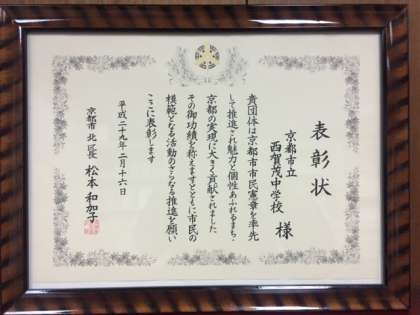 表彰状
京都市立
西賀茂中学校 様
貴団体は京都市市民憲章を率先
して推進され魅力と個性あふれるまち・
京都の実現に大きく貢献されました
その御功績を称えますとともに市民の
模範となる活動のさらなる推進を願い
ここに表彰します
平成二十九年二月十六日
京都市 北区長 松本 和加子